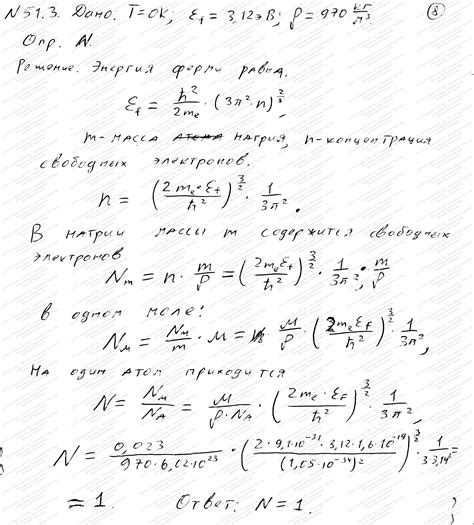 N 51.3. Дано: T=0K; ε_f = 3,12эВ; ρ = 970 кг/м³. ⑧
Опр. N.
Решение. Энергия ферми равна.
ε_f = ħ²/2m_e · (3π²·n)^(2/3),
m-масса натрия, n-концентрация
свободных электронов.
n = (2m_e·ε_f/ħ²)^(3/2) · 1/3π².
В натрии массы m содержится свободных
электронов
N_m = n · m/ρ = (2m_eε_f/ħ²)^(3/2) · 1/3π² · m/ρ
в одном моле:
N_м = N_m/m · м = м/ρ · (2m_eε_f/ħ²)^(3/2) · 1/3π²,
На один атом приходится
N = N_м/N_A = м/ρ·N_A · (2m_e·ε_F/ħ²)^(3/2) · 1/3π²,
N = 0,023/970·6,02·10²³ · (2·9,1·10⁻³¹·3,12·1,6·10⁻¹⁹/(1,05·10⁻³⁴)²)^(3/2) · 1/3·3,14² =
= 1. Ответ: N = 1.